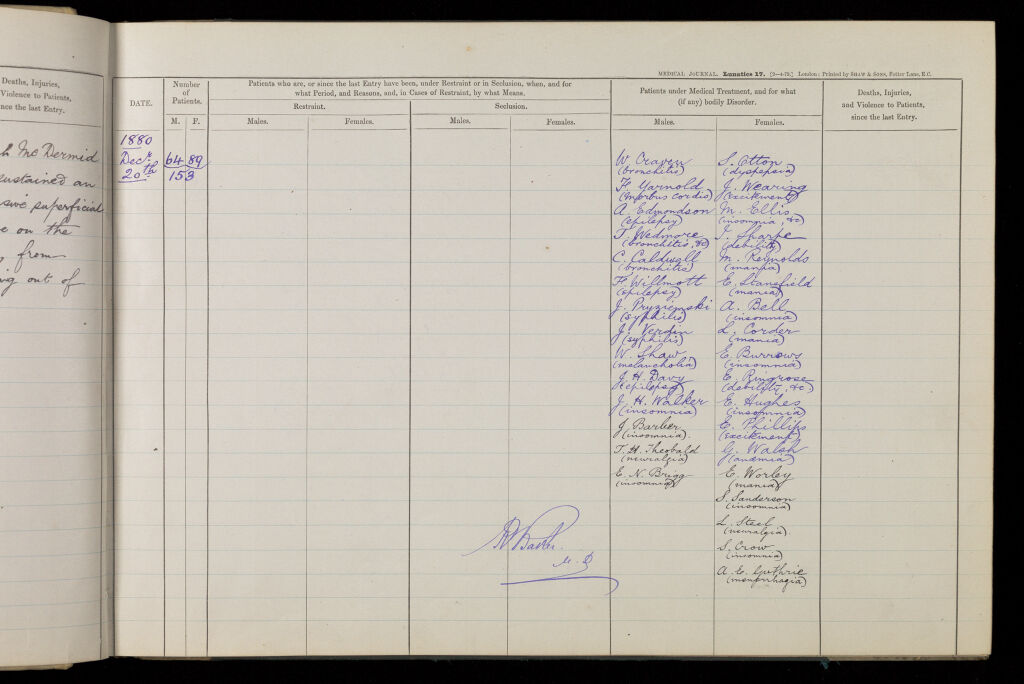 Deaths, Injuries,
Violence to Patients,
nce the last Entry.
h Mc Dermid
sustained an
sive superficial
e on the
from
ing out of
MEDICAL JOURNAL. Lunatics 17. London: Printed by SHAW & SONS, Fetter Lane, E.C.
DATE.
Number
of
Patients.
M. F.
Patients who are, or since the last Entry have been, under Restraint or in Seclusion, when, and for
what Period, and Reasons, and, in Cases of Restraint, by what Means.
Restraint.
Seclusion.
Males.
Females.
Males.
Females.
Patients under Medical Treatment, and for what
(if any) bodily Disorder.
Males.
Females.
Deaths, Injuries,
and Violence to Patients,
since the last Entry.
1880
Decr
20th
64 89
153
W. Craven
(bronchitis)
F. Yarnold
(morbus cordis)
A. Edmondson
(epilepsy)
T. Wedmore
(bronchitis, &c)
C. Caldwell
(bronchitis)
F. Willmott
(epilepsy)
J. Pryziemski
(syphilis)
J. Verdin
(syphilis)
W. Shaw
(melancholia)
J. H. Davy
(epilepsy)
J. H. Walker
(insomnia)
J. Barber
(insomnia).
T. H. Theobald
(neuralgia)
E. N. Brigg
(insomnia)
S. Otton
(dyspepsia)
J. Wearing
(excitement)
M. Ellis
(insomnia, &c)
J. Sharpe
(debility)
M. Reynolds
(mania)
E. Stansfield
(mania)
A. Bell
(insomnia)
L. Corder
(mania)
E. Burrows
(insomnia)
E. Ringrose
(debility, &c.)
E. Hughes
(insomnia)
E. Phillips
(excitement)
G. Walsh
(anæmia)
E. Worley
(mania)
S. Sanderson
(insomnia)
L. Steel
(neuralgia)
S. Crow
(insomnia)
A. E. Guthrie
(menorrhagia)
Baker.
M.D